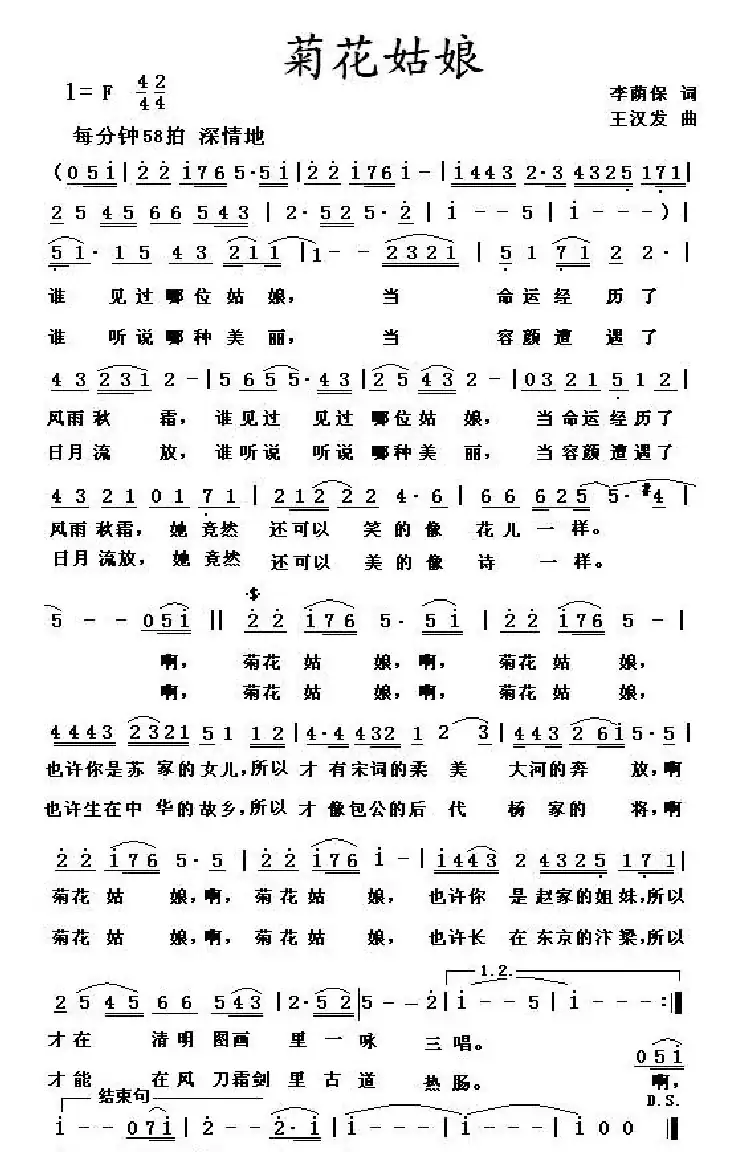 菊花姑娘
1= F 4/4 2/4
李荫保 词
王汉发 曲
每分钟58拍 深情地
(0 5 i | 2 2 i 7 6 5· 5 i | 2 2 i 7 6 i - | i 4 4 3 2· 3 4 3 2 5 1 7 1 |
2 5 4 5 6 6 5 4 3 | 2· 5 2 5· 2 | i - - 5 | i - - ) |
5 1· 1 5 4 3 2 1 1 | 1 - - 2 3 2 1 | 5 1 7 1 2 2· |
谁 见过哪位姑 娘, 当 命运经 历了
谁 听说哪种美 丽, 当 容颜遭 遇了
4 3 2 3 1 2 - | 5 6 5 5· 4 3 | 2 5 4 3 2 - | 0 3 2 1 5 1 2 |
风雨秋 霜, 谁见过 见过 哪位姑 娘, 当命运经历了
日月流 放, 谁听说 听说 哪种美 丽, 当容颜遭遇了
4 3 2 1 0 1 7 1 | 2 1 2 2 2 4· 6 | 6 6 6 2 5 5· #4 |
风雨秋霜, 她 竟然 还可以 笑的像 花儿 一样。
日月流放, 她 竟然 还可以 美的像 诗 一样。
5 - - 0 5 i || 2 2 i 7 6 5· 5 i | 2 2 i 7 6 5 - |
啊, 菊花姑 娘, 啊, 菊花姑 娘,
啊, 菊花姑 娘, 啊, 菊花姑 娘,
4 4 4 3 2 3 2 1 5 1 1 2 | 4· 4 4 3 2 1 2 3 | 4 4 3 2 6 i 5· 5 |
也许你是苏 家的女儿,所以 才 有宋词的柔 美 大河的奔 放,啊
也许生在中 华的故乡,所以 才 像包公的后 代 杨 家的 将,啊
2 2 i 7 6 5· 5 | 2 2 i 7 6 i - | i 4 4 3 2 4 3 2 5 1 7 1 |
菊花 姑 娘,啊, 菊花姑 娘, 也许你 是 赵家的姐妹,所以
菊花 姑 娘,啊, 菊花姑 娘, 也许长 在 东京的汴梁,所以
1.2.
2 5 4 5 6 6 5 4 3 | 2· 5 2 | 5 - - 2 | i - - 5 | i - - :||
才在 清明 图画 里 一 咏 三 唱。 0 5 i
才能 在风 刀霜剑 里 古 道 热 肠。 啊,
结束句 D.S.
i - - 0 7 i | 2 - - 2· i | i - - - | i - - - | i 0 0 ||